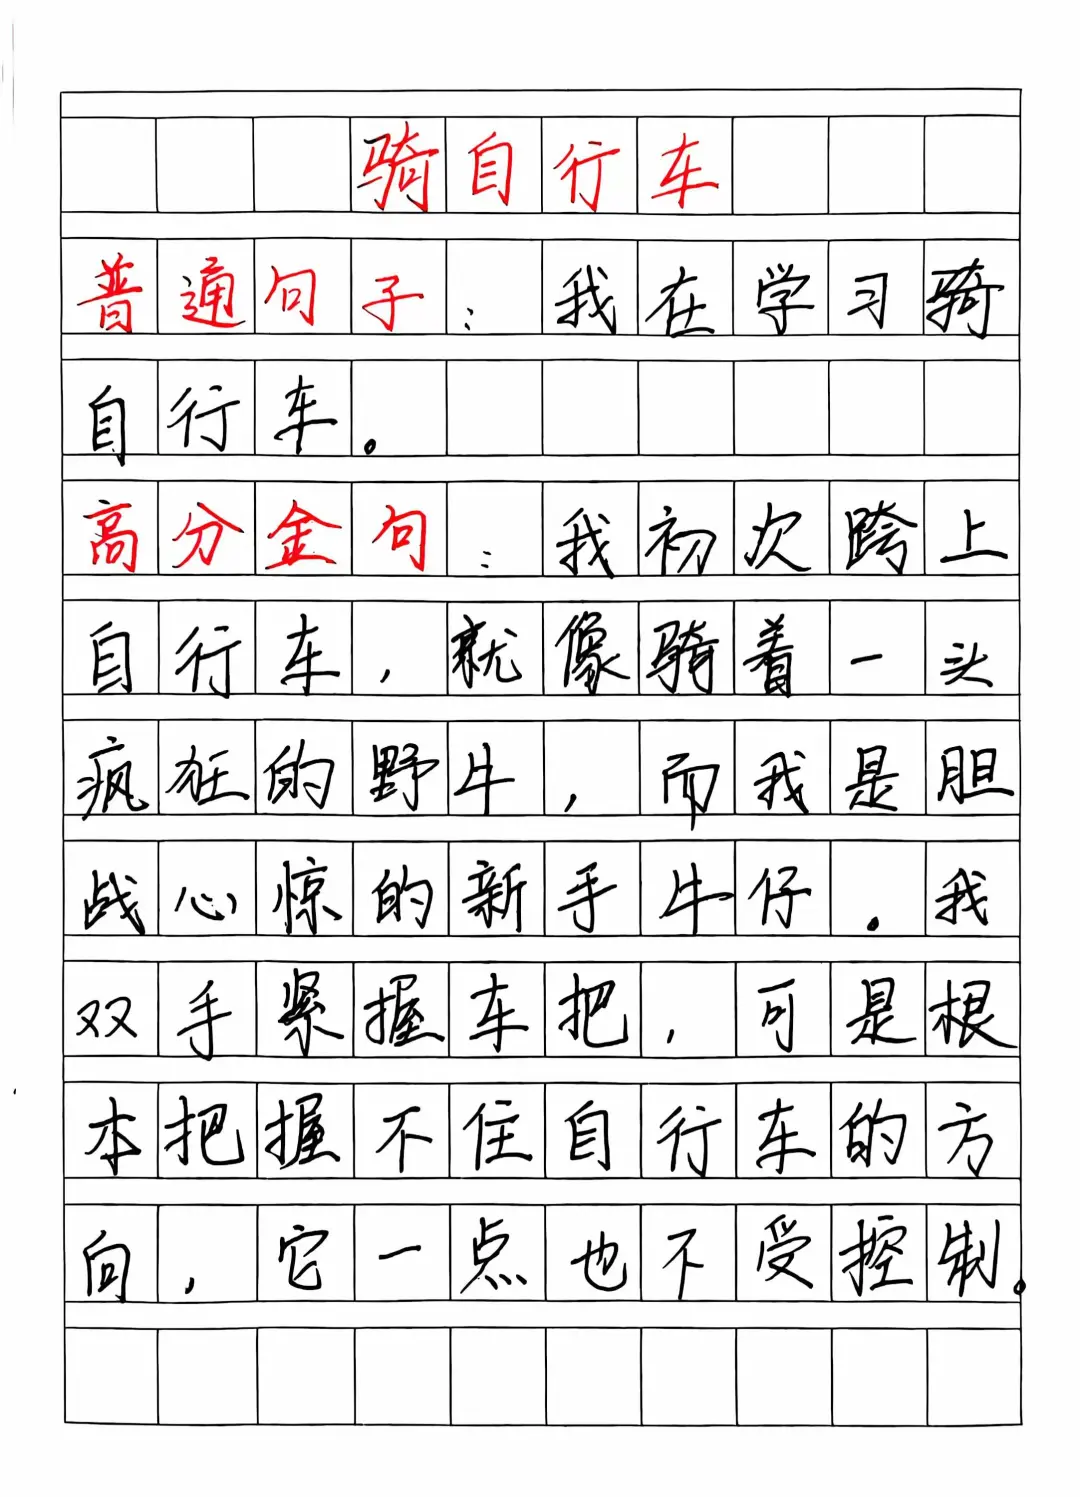 骑自行车
普通句子：我在学习骑
自行车。
高分金句：我初次跨上
自行车，就像骑着一头
疯狂的野牛，而我是胆
战心惊的新手牛仔。我
双手紧握车把，可是根
本把握不住自行车的方
向，它一点也不受控制。